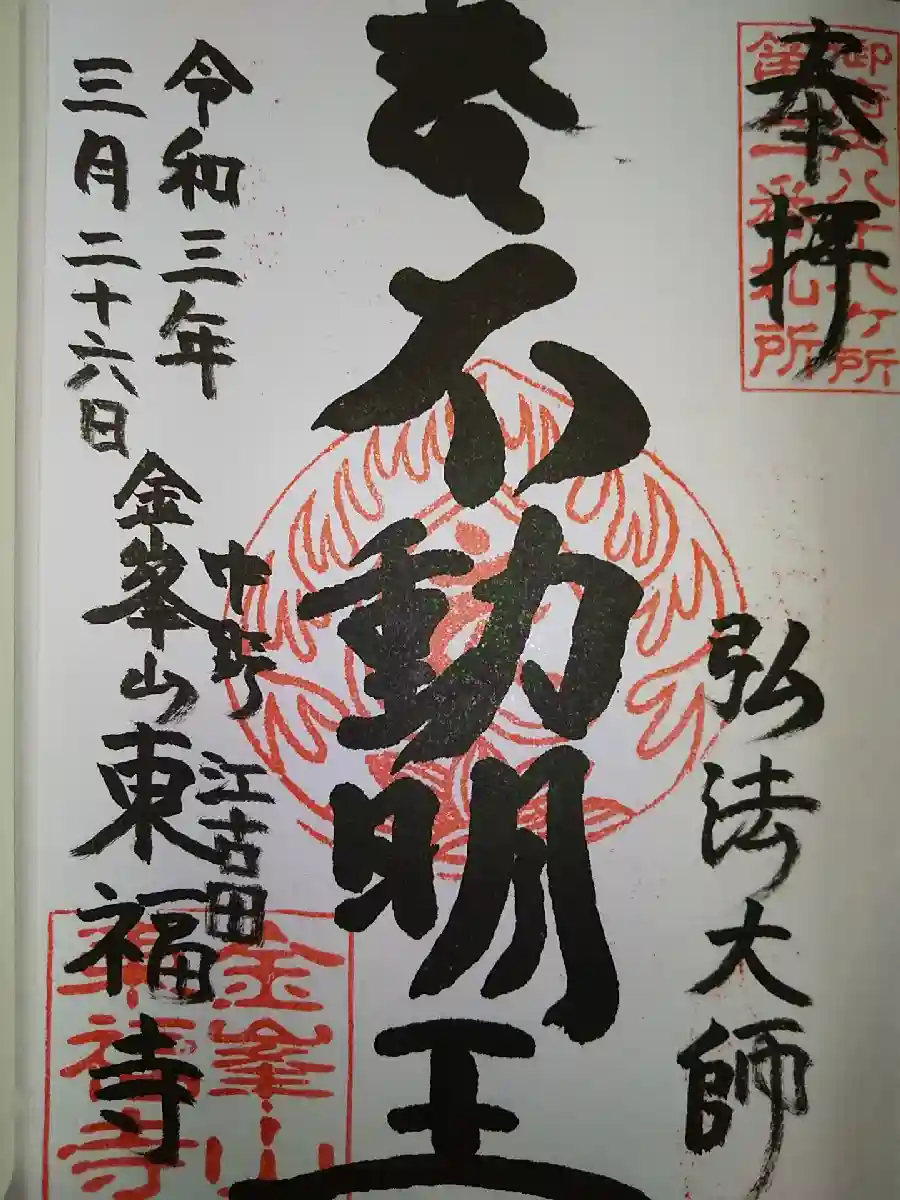 奉拝
御府内八十八ヶ所
第二番札所
弘法大師
不動明王
令和三年
三月二十六日
中野 江古田
金峯山東福寺
金峯山
東福寺